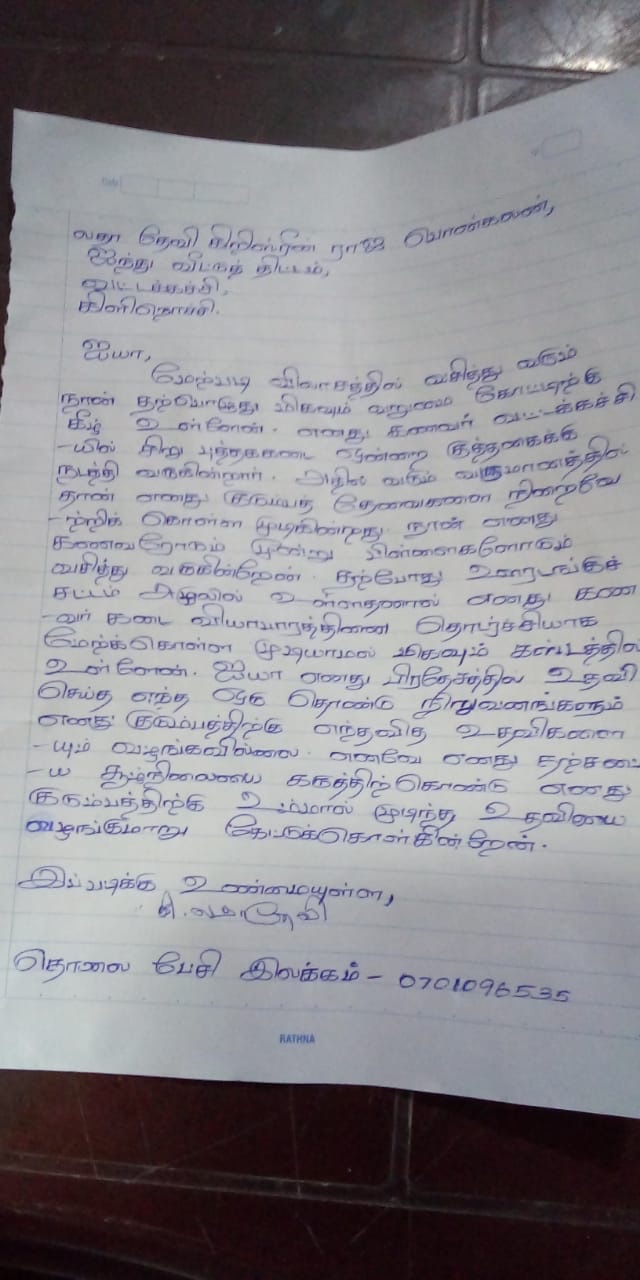 Date
லதா தேவி கிறிஸ்ரீன் ராஜ பொன்கலன்,
ஐந்து வீட்டுத் திட்டம்,
வட்டக்கச்சி,
கிளிநொச்சி.
ஐயா,
மேற்படி விலாசத்தில் வசித்து வரும்
நான் தற்பொழுது மிகவும் வறுமை கோட்டிற்கு
கீழ் உள்ளேன். எனது கணவர் வட்டக்கச்சி
-யில் சிறு புத்தககடை ஒன்றை குத்தகைக்கு
நடத்தி வருகின்றார். அதில் வரும் வருமானத்தில்
தான் எனது குடும்பத் தேவைகளை நிறைவே
-ற்றிக் கொள்ள முடிகின்றது. நான் எனது
கணவரோடும் மூன்று பிள்ளைகளோடும்
வசித்து வருகின்றேன். தற்போது ஊரடங்குச்
சட்டம் அமுலில் உள்ளதனால் எனது கண
-வர் கடை வியாபாரத்தினை தொடர்ச்சியாக
மேற்க்கொள்ள முடியாமல் மிகவும் கஸ்டத்தில்
உள்ளேன். ஐயா எனது பிரதேசத்தில் உதவி
செய்த எந்த ஒரு தொண்டு நிறுவனங்களும்
எனது குடும்பத்திற்கு எந்தவித உதவிகளை
-யும் வழங்கவில்லை. எனவே எனது தற்சமய
-ய சூழ்நிலையை கருத்திற்கொண்டு எனது
குடும்பத்திற்கு உம்மால் முடிந்த உதவியை
வழங்குமாறு கேட்டுக்கொள்கின்றேன்.
இப்படிக்கு உண்மையுள்ள,
கி. லதாதேவி
தொலை பேசி இலக்கம் - 0701096535
RATHNA